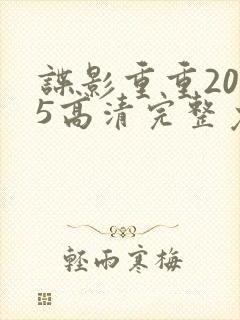 諜影重重20
5高清完整
輕雨寒梅